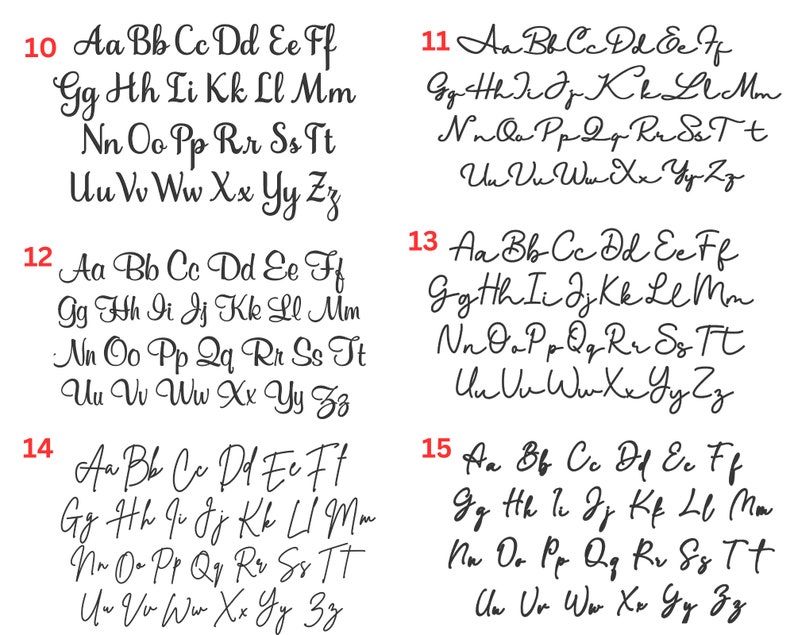 10 Aa Bb Cc Dd Ee Ff
Gg Hh Ii Kk Ll Mm
Nn Oo Pp Rr Ss Tt
Uu Vv Ww Xx Yy Zz
11 Aa Bb Cc Dd Ee Ff
Gg Hh Ii Jj Kk Ll Mm
Nn Oo Pp Qq Rr Ss Tt
Uu Vv Ww Xx Yy Zz
12 Aa Bb Cc Dd Ee Ff
Gg Hh Ii Jj Kk Ll Mm
Nn Oo Pp Qq Rr Ss Tt
Uu Vv Ww Xx Yy Zz
13 Aa Bb Cc Dd Ee Ff
Gg Hh Ii Jj Kk Ll Mm
Nn Oo Pp Qq Rr Ss Tt
Uu Vv Ww Xx Yy Zz
14 Aa Bb Cc Dd Ee Ff
Gg Hh Ii Jj Kk Ll Mm
Nn Oo Pp Qq Rr Ss Tt
Uu Vv Ww Xx Yy Zz
15 Aa Bb Cc Dd Ee Ff
Gg Hh Ii Jj Kk Ll Mm
Nn Oo Pp Qq Rr Ss Tt
Uu Vv Ww Xx Yy Zz